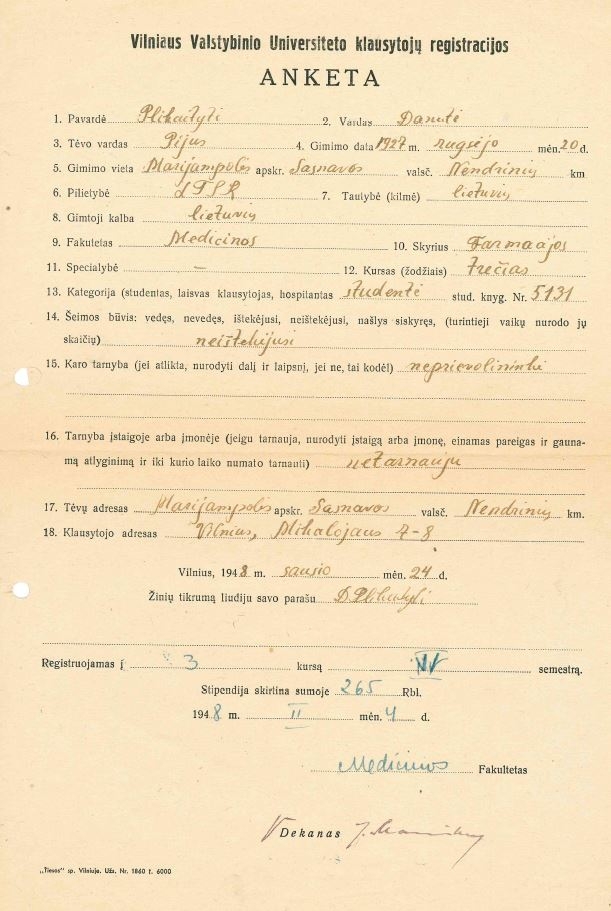 Vilniaus Valstybinio Universiteto klausytojų registracijos
ANKETA
1. Pavardė Plikaitytė 2. Vardas Danutė
3. Tėvo vardas Pijus 4. Gimimo data 1927 m. rugsėjo mėn. 20 d.
5. Gimimo vieta Marijampolės apskr. Sasnavos valsč. Nendrinių km
6. Pilietybė LTSR 7. Tautybė (kilmė) lietuvių
8. Gimtoji kalba lietuvių
9. Fakultetas Medicinos 10. Skyrius Farmacijos
11. Specialybė – 12. Kursas (žodžiais) trečias
13. Kategorija (studentas, laisvas klausytojas, hospitantas studentė stud. knyg. Nr. 5131
14. Šeimos būvis: vedęs, nevedęs, ištekėjusi, neištekėjusi, našlys siskyręs, (turintieji vaikų nurodo jų
skaičių) neištekėjusi
15. Karo tarnyba (jei atlikta, nurodyti dalį ir laipsnį, jei ne, tai kodėl) neprievolininkė
16. Tarnyba įstaigoje arba įmonėje (jeigu tarnauja, nurodyti įstaigą arba įmonę, einamas pareigas ir gauna-
mą atlyginimą ir iki kurio laiko numato tarnauti) netarnauju
17. Tėvų adresas Marijampolės apskr. Sasnavos valsč. Nendrinių km.
18. Klausytojo adresas Vilnius, Mikalojaus 7-8
Vilnius, 1948 m. sausio mėn. 24 d.
Žinių tikrumą liudiju savo parašu
Registruojamas į 3 kursą semestrą.
Stipendija skirtina sumoje 265 Rbl.
1948 m. II mėn. 4 d.
Medicinos Fakultetas
Dekanas
„Tiesos" sp. Vilniuje. Užs. Nr. 1860 t. 6000